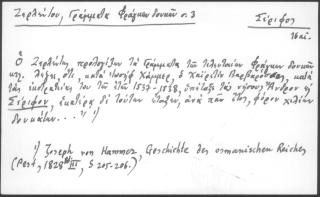 Ζερλέντου, Γράμματα Φράγκων Δουκῶν σ. 3
Σέριφος
Ὁ Ζερλέντης, προλογίζων τὰ Γράμματα τῶν τελευταίων Φράγκων Δουκῶν
λέγει, ὅτι, κατὰ Ἰωσὴφ Χάμμερ, ὁ Χαϊρεντὶν Βαρβαρόσσας, κατὰ
τὰς ἐκστρατείας του τῶν ἐτῶν 1537-1538, ὑπέταξε τὰς νήσους Ἄνδρον καὶ
Σέριφον, ἑκατέρᾳ δὲ τούτων ἐπέταξεν, ἀνὰ πᾶν ἔτος, φόρον χιλίων
δουκάτων...¹⁾
1) Joseph von Hammer, Geschichte des osmanischen Reiches
(Pest, 1828, III, S 205-206.)